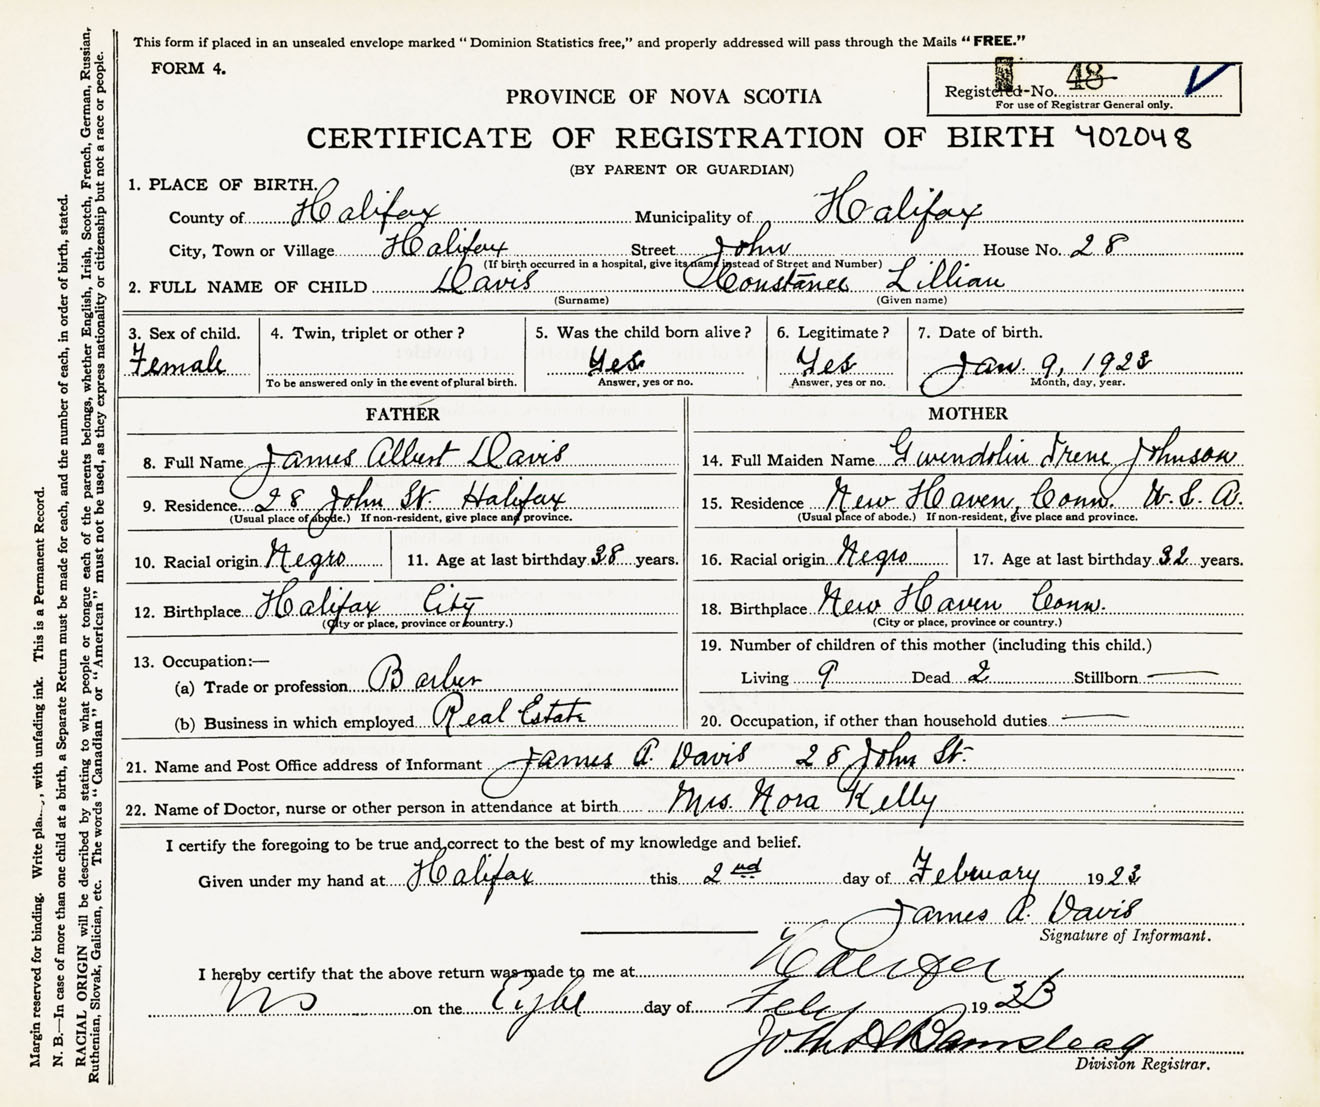 This form if placed in an unsealed envelope marked "Dominion Statistics free," and properly addressed will pass through the Mails "FREE."
FORM 4.
Registered-No. 48
For use of Registrar General only.
PROVINCE OF NOVA SCOTIA
CERTIFICATE OF REGISTRATION OF BIRTH 402048
(BY PARENT OR GUARDIAN)
1. PLACE OF BIRTH.
County of Halifax Municipality of Halifax
City, Town or Village Halifax Street John House No. 28
(If birth occurred in a hospital, give its name instead of Street and Number)
2. FULL NAME OF CHILD Davis Constance Lillian
(Surname) (Given name)
3. Sex of child. 4. Twin, triplet or other? 5. Was the child born alive? 6. Legitimate? 7. Date of birth.
Female Yes Yes Jan. 9, 1923
To be answered only in the event of plural birth. Answer, yes or no. Answer, yes or no. Month, day, year.
FATHER MOTHER
8. Full Name James Albert Davis 14. Full Maiden Name Gwendolin Irene Johnson
9. Residence 28 John St. Halifax 15. Residence New Haven, Conn. U.S.A.
(Usual place of abode.) If non-resident, give place and province. (Usual place of abode.) If non-resident, give place and province.
10. Racial origin Negro 11. Age at last birthday 38 years. 16. Racial origin Negro 17. Age at last birthday 32 years.
12. Birthplace Halifax City 18. Birthplace New Haven Conn.
(City or place, province or country.) (City or place, province or country.)
19. Number of children of this mother (including this child.)
13. Occupation:—
(a) Trade or profession Barber Living 9 Dead 2 Stillborn —
(b) Business in which employed Real Estate 20. Occupation, if other than household duties —
21. Name and Post Office address of Informant James A. Davis 28 John St.
22. Name of Doctor, nurse or other person in attendance at birth Mrs. Nora Kelly
I certify the foregoing to be true and correct to the best of my knowledge and belief.
Given under my hand at Halifax this 2nd day of February 1923
James A. Davis
Signature of Informant.
I hereby certify that the above return was made to me at
on the day of 1923
John
Division Registrar.
Margin reserved for binding. Write with unfading ink. This is a Permanent Record.
N. B.—In case of more than one child at a birth, a Separate Return must be made for each, and the number of each, in order of birth, stated.
RACIAL ORIGIN will be described by stating to what people or tongue each of the parents belongs, whether English, Irish, Scotch, French, German, Russian,
Ruthenian, Slovak, Galician, etc. The words "Canadian" or "American" must not be used, as they express nationality or citizenship but not a race or people.